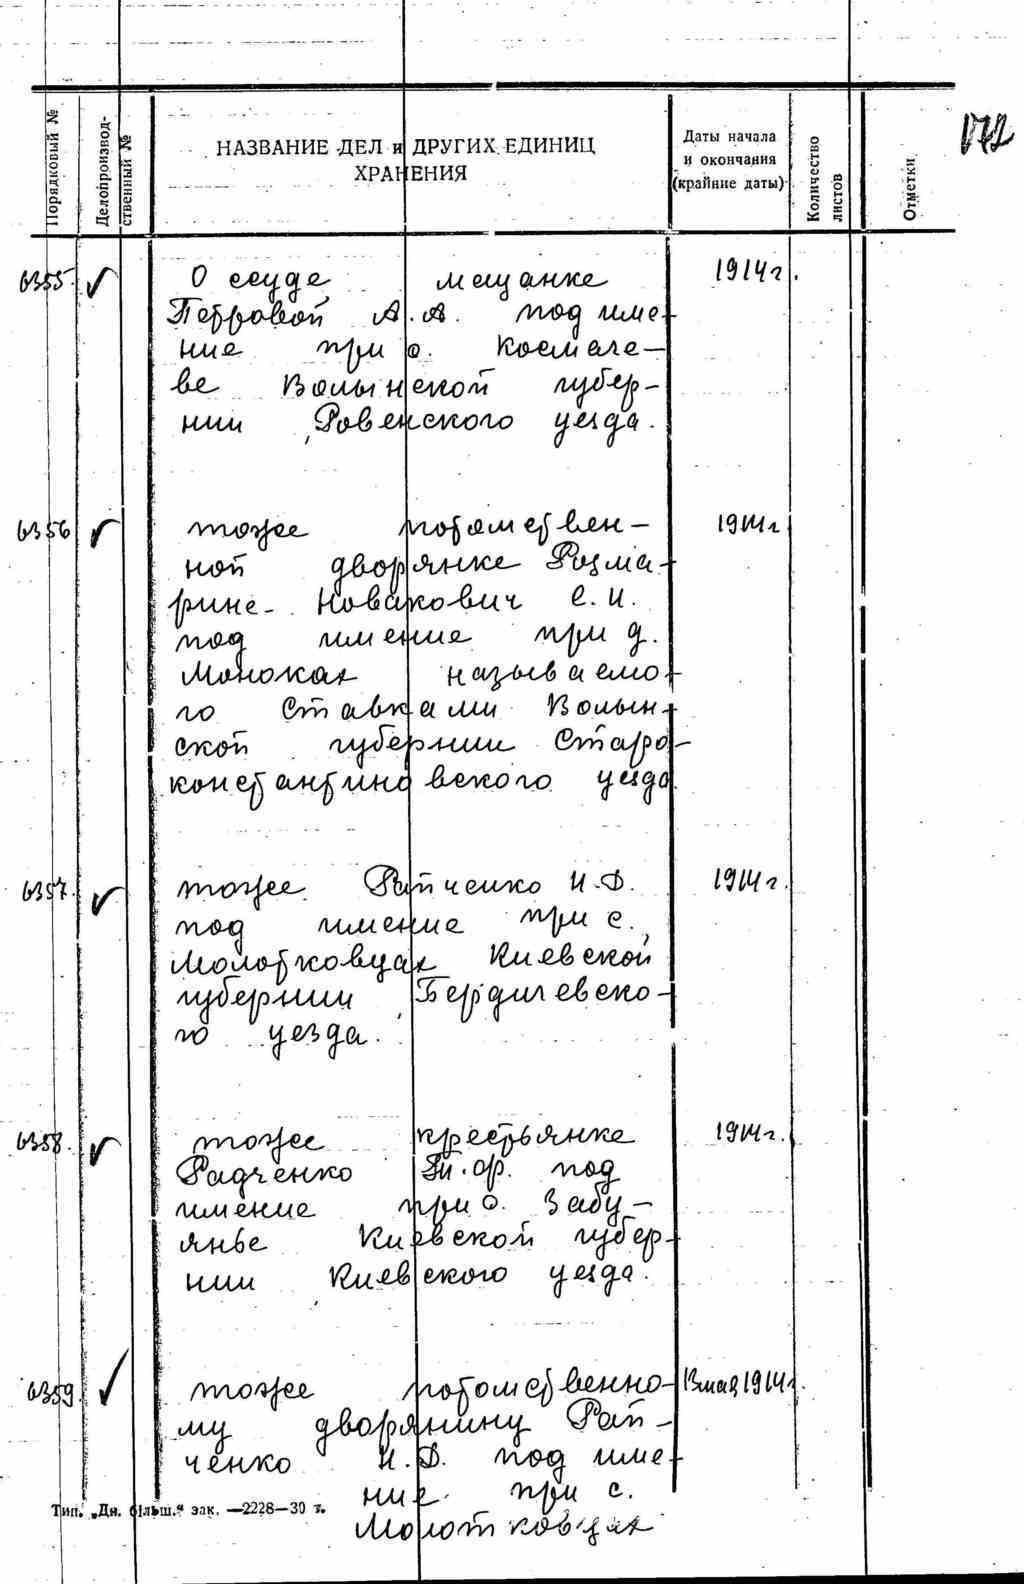 172
Порядковый №
Делопроизвод-
ственный №
НАЗВАНИЕ ДЕЛ и ДРУГИХ ЕДИНИЦ
ХРАНЕНИЯ
Даты начала
и окончания
(крайние даты)
Количество
листов
Отметки
6355. О ссуде мещанке 1914 г.
Петровой А.А. под име-
ние при с. Космале-
ве Волынской губер-
нии Ровенского уезда.
6356 тоже потомствен- 1914 г
ной дворянке Розма-
рине- Новакович С.И.
под имение при д.
Моноках называемо-
го Ставками Волын-
ской губернии Старо-
константиновского уезда
6357. тоже Райченко И.Ф. 1914 г.
под имение при с.
Молотковцах Киевской
губернии Бердичевско-
го уезда.
6358. тоже крестьянке 1914 г.
Радченко под
имение при с. Забу-
янье Киевской губер-
нии Киевского уезда.
6359 тоже потомственно- 13 мая 1914 г.
му дворянину Рай-
ченко И.Ф. под име-
ние при с.
Молотковцах
Тип. „Дн. більш.“ зак. —2228—30 т.